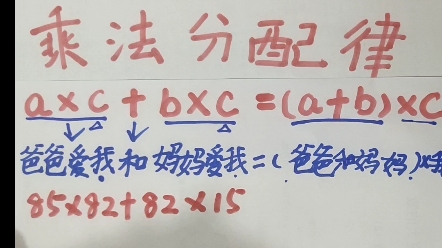 乘法分配律
a×c+b×c=(a+b)×c
爸爸爱我和妈妈爱我=(爸爸和妈妈)×我
85×82+82×15